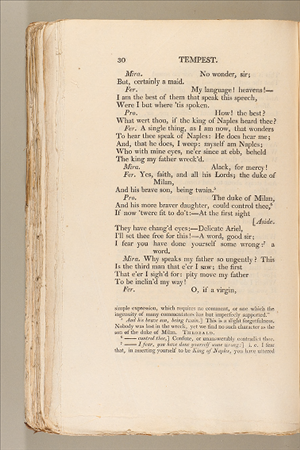 30 TEMPEST.
Mira. No wonder, sir;
But, certainly a maid.
Fer. My language! heavens!—
I am the best of them that speak this speech,
Were I but where 'tis spoken.
Pro. How! the best?
What wert thou, if the king of Naples heard thee?
Fer. A single thing, as I am now, that wonders
To hear thee speak of Naples: He does hear me;
And, that he does, I weep: myself am Naples;
Who with mine eyes, ne'er since at ebb, beheld
The king my father wreck'd.
Mira. Alack, for mercy!
Fer. Yes, faith, and all his lords; the duke of
Milan,
And his brave son, being twain.⁵
Pro. The duke of Milan,
And his more braver daughter, could control thee,⁶
If now 'twere fit to do't:—At the first sight
[Aside.
They have chang'd eyes:—Delicate Ariel,
I'll set thee free for this!—A word, good sir;
I fear you have done yourself some wrong:⁷ a
word,
Mira. Why speaks my father so ungently? This
Is the third man that e'er I saw; the first
That e'er I sigh'd for: pity move my father
To be inclin'd my way!
Fer. O, if a virgin,
simple expression, which requires no comment, or one which the
ingenuity of many commentators has but imperfectly supported."
⁵ And his brave son, being twain.] This is a slight forgetfulness.
Nobody was lost in the wreck, yet we find no such character as the
son of the duke of Milan. THEOBALD.
⁶ —— control thee,] Confute, or unanswerably contradict thee.
⁷ —— I fear, you have done yourself some wrong:] i. e. I fear
that, in asserting yourself to be king of Naples, you have uttered